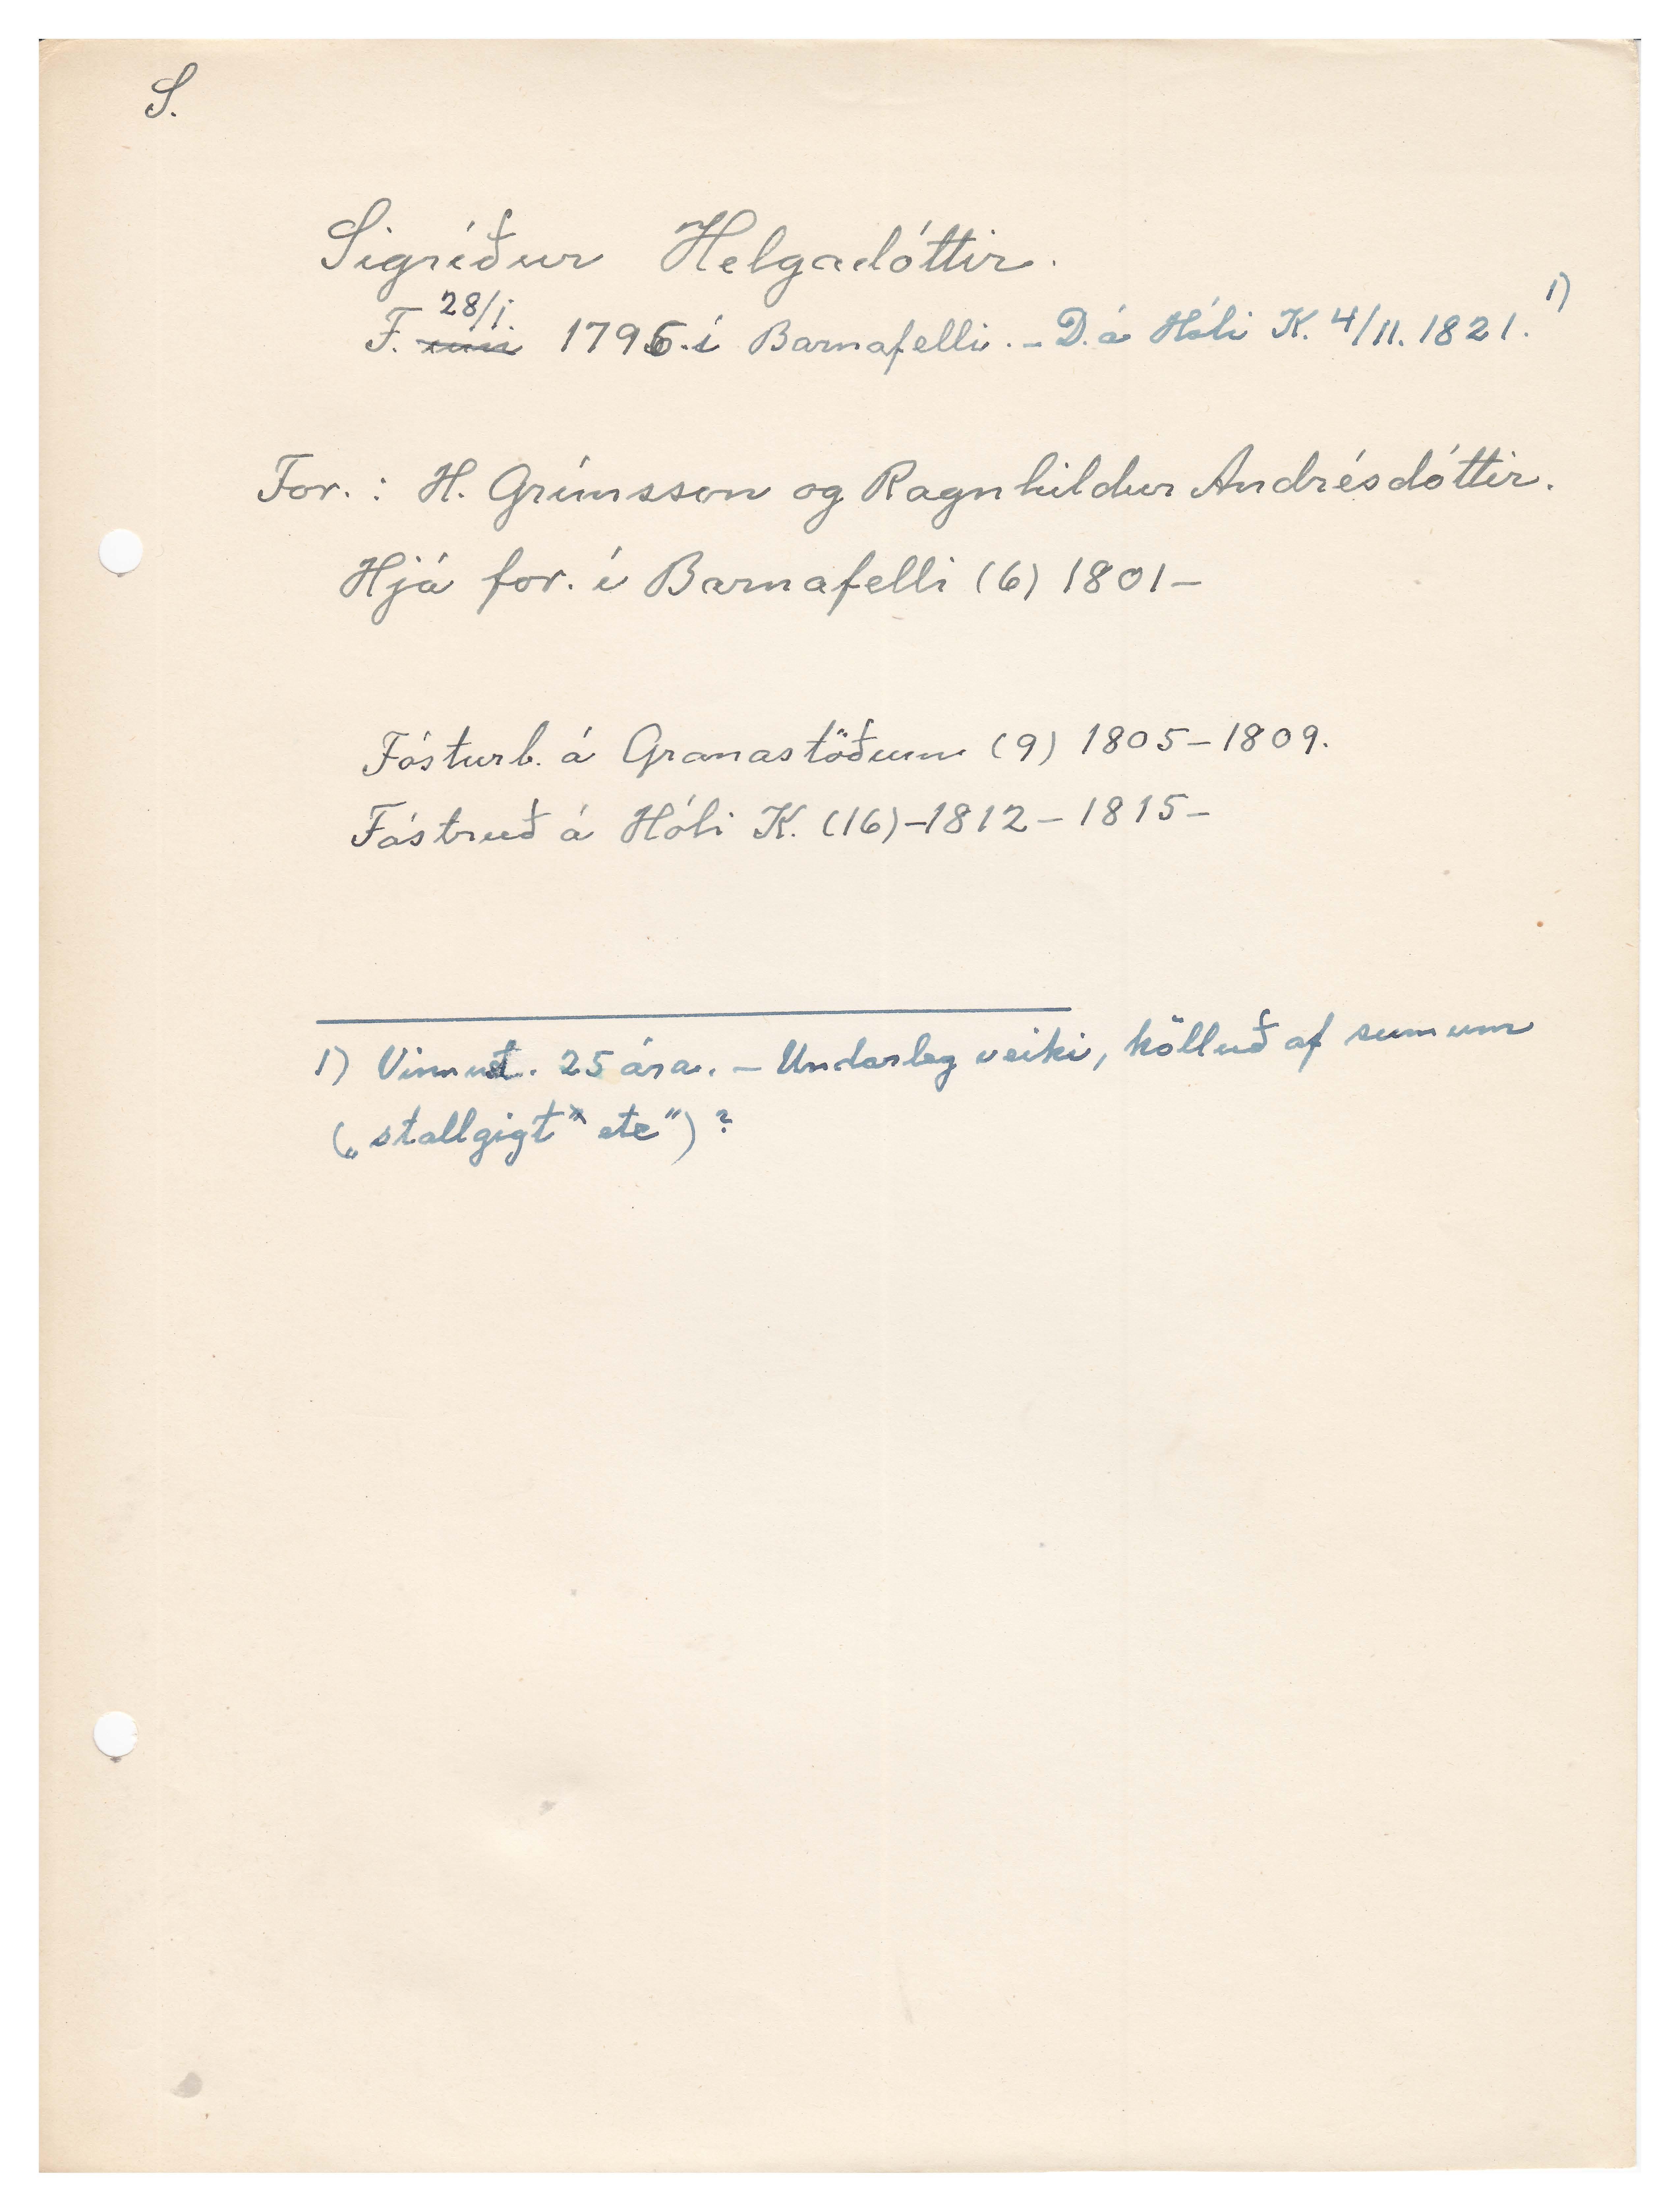 S.
Sigríður Helgadóttir.
F. 28/1. 1796. í Barnafelli. - D. á Hóli K. 4/11. 1821. 1)
For. : H. Grímsson og Ragnhildur Andrésdóttir.
Hjá for. í Barnafelli (6) 1801-
Fósturb. á Granastöðum (9) 1805-1809.
Fóstruð á Hóli K. (16)-1812-1815-
1) Vinnust. 25 ára. - Undarleg veiki, kölluð af sumum
(„stallgigt" etc") ?